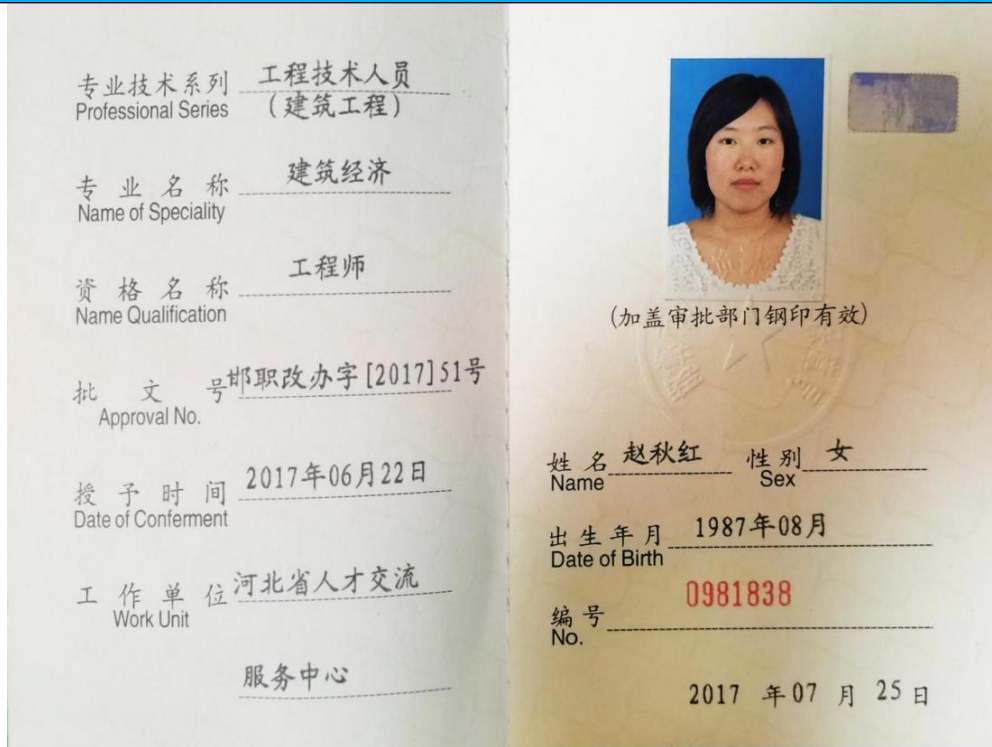 专业技术系列 工程技术人员
Professional Series （建筑工程）
专业名称 建筑经济
Name of Speciality
资格名称 工程师
Name Qualification
批文号 邯职改办字[2017]51号
Approval No.
授予时间 2017年06月22日
Date of Conferment
工作单位 河北省人才交流
Work Unit
服务中心
(加盖审批部门钢印有效)
姓名 赵秋红 性别 女
Name Sex
出生年月 1987年08月
Date of Birth
编号 0981838
No.
2017 年 07 月 25 日